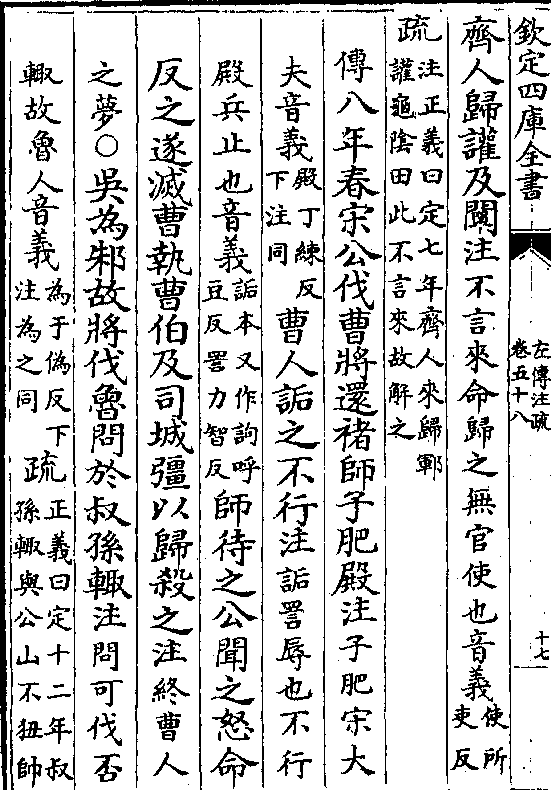 欽定四庫全書
左傳注疏
卷五十八
十七
齊人歸讙及闡注不言來命歸之無官使也音義使所
吏反
疏注正義曰定七年齊人來歸鄆
讙龜陰田此不言來故解之
傳八年春宋公伐曹將還禇師子肥殿注子肥宋大
夫音義殿丁練反
下注同
曹人詬之不行注詬詈辱也不行
殿兵止也音義詬本又作訽呼
豆反詈力智反
師待之公聞之怒命
反之遂滅曹執曹伯及司城彊以歸殺之注終曹人
之夢○吳為邾故將伐魯問於叔孫輙注問可伐否
輙故魯人音義為于偽反下
注為之同
疏正義曰定十二年叔
孫輙與公山不狃帥